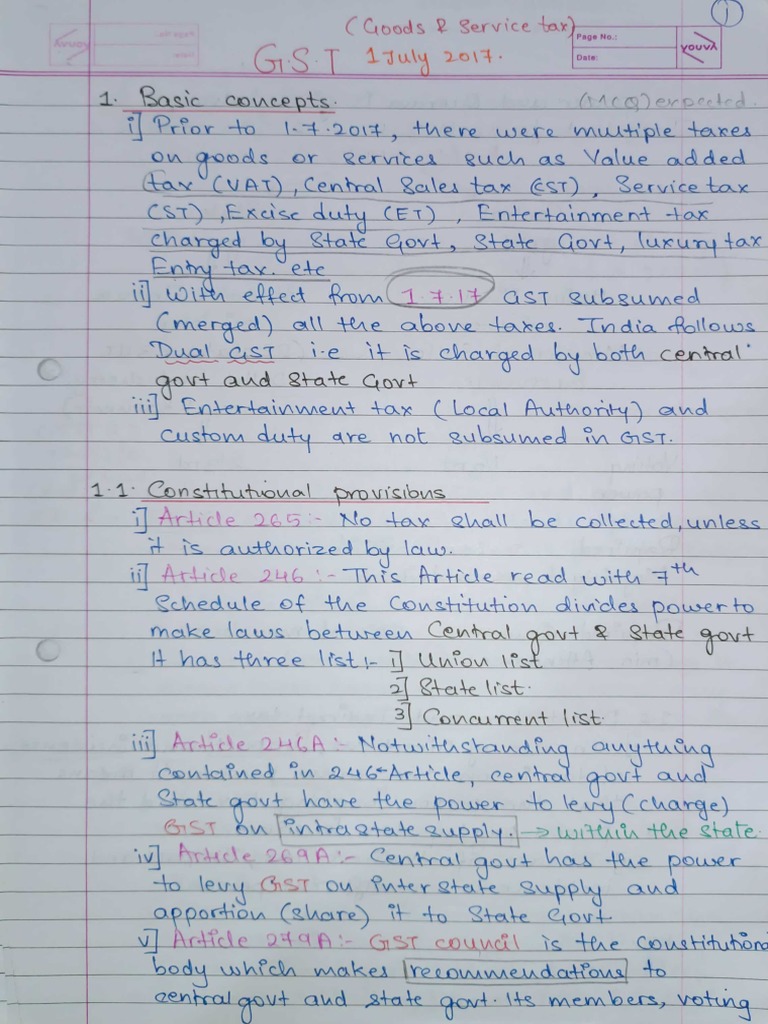 1
(Goods & Service tax)
Page No.:
Date:
youva
G.S.T 1 July 2017.
1. Basic concepts. (MCQ) expected.
i] Prior to 1.7.2017, there were multiple taxes
on goods or services such as Value added
tax (VAT), Central Sales tax (CST), Service tax
(ST), Excise duty (ET), Entertainment tax
charged by State Govt, State Govt, luxury tax
Entry tax. etc
ii] With effect from 1.7.17 GST subsumed
(merged) all the above taxes. India follows
Dual GST i.e it is charged by both central
govt and State Govt
iii] Entertainment tax (Local Authority) and
custom duty are not subsumed in GST.
1.1. Constitutional provisions
i] Article 265:- No tax shall be collected, unless
it is authorized by law.
ii] Article 246:- This Article read with 7th
Schedule of the Constitution divides power to
make laws between Central govt & State govt
It has three list:- 1] Union list
2] State list.
3] Concurrent list.
iii] Article 246A:- Notwithstanding anything
contained in 246-Article, central govt and
State govt have the power to levy (charge)
GST on intrastate supply. → within the state.
iv] Article 269A:- Central govt has the power
to levy GST on interstate supply and
apportion (share) it to State Govt
v] Article 279A:- GST council is the constitutional
body which makes recommendations to
central govt and state govt. Its members, voting